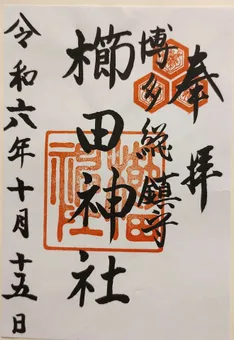 奉拝
博多総鎮守
櫛田神社
令和六年十月十五日